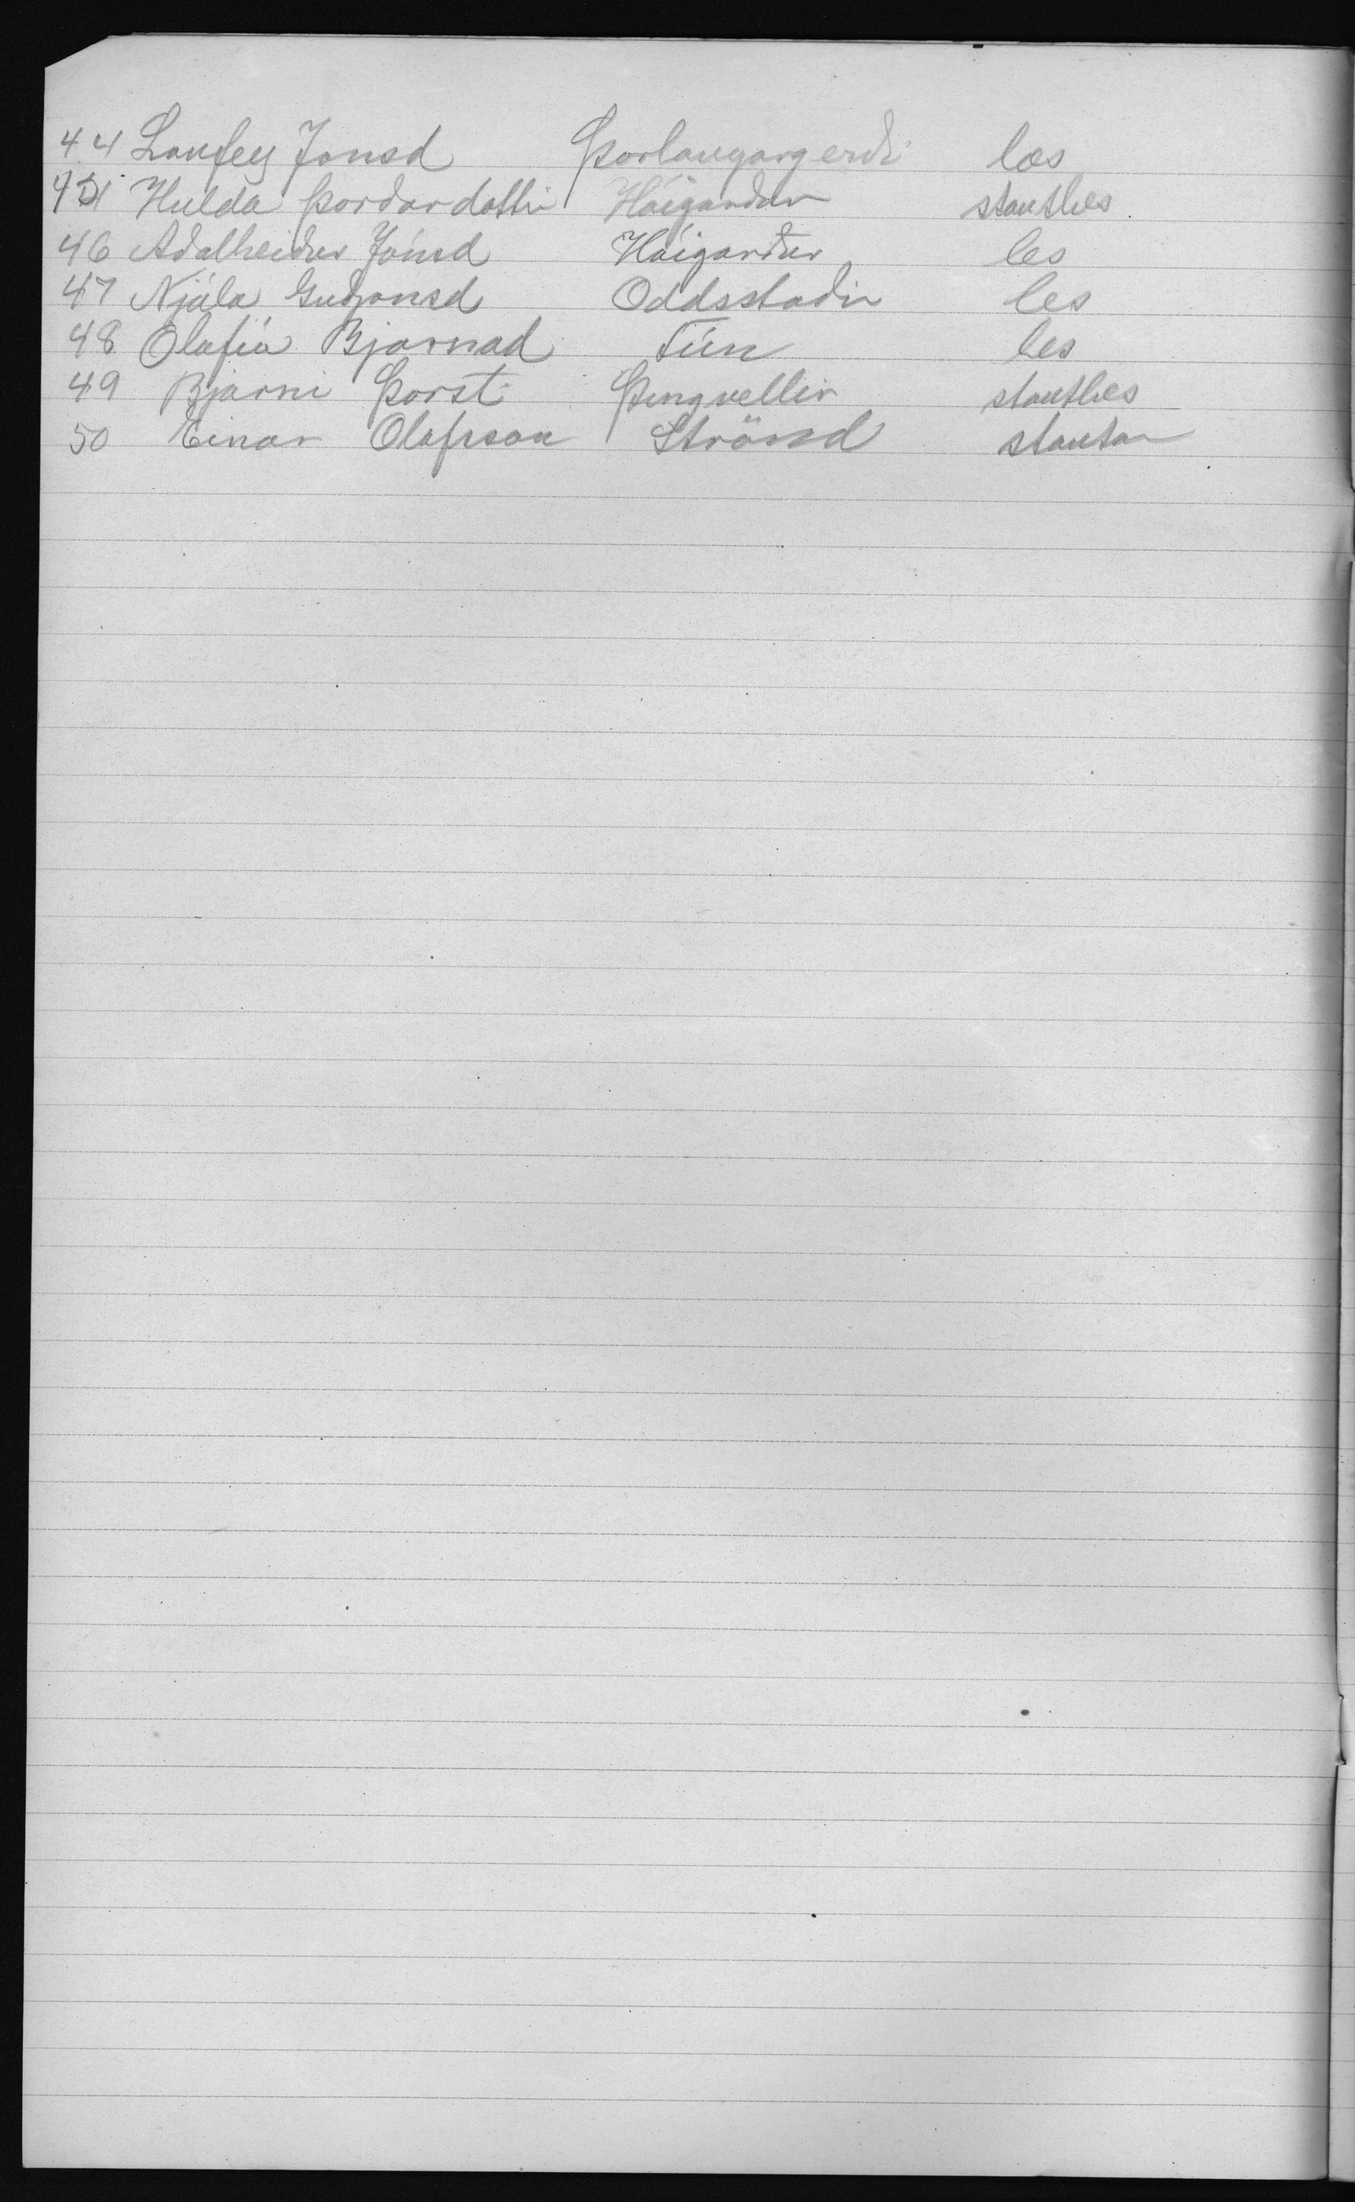 44 Laufey Jonsd Þorlaugargerði læs
45 Hulda Þorðardottir Háigarður stautlæs.
46 Aðalheiður Jónsd Háigarður læs
47 Njála Guðjonsd Oddsstaðir læs
48 Olafía Bjarnad Tún læs
49 Bjarni Þorst. Þingvellir stautlæs
50 Einar Olafsson Strönd stautar